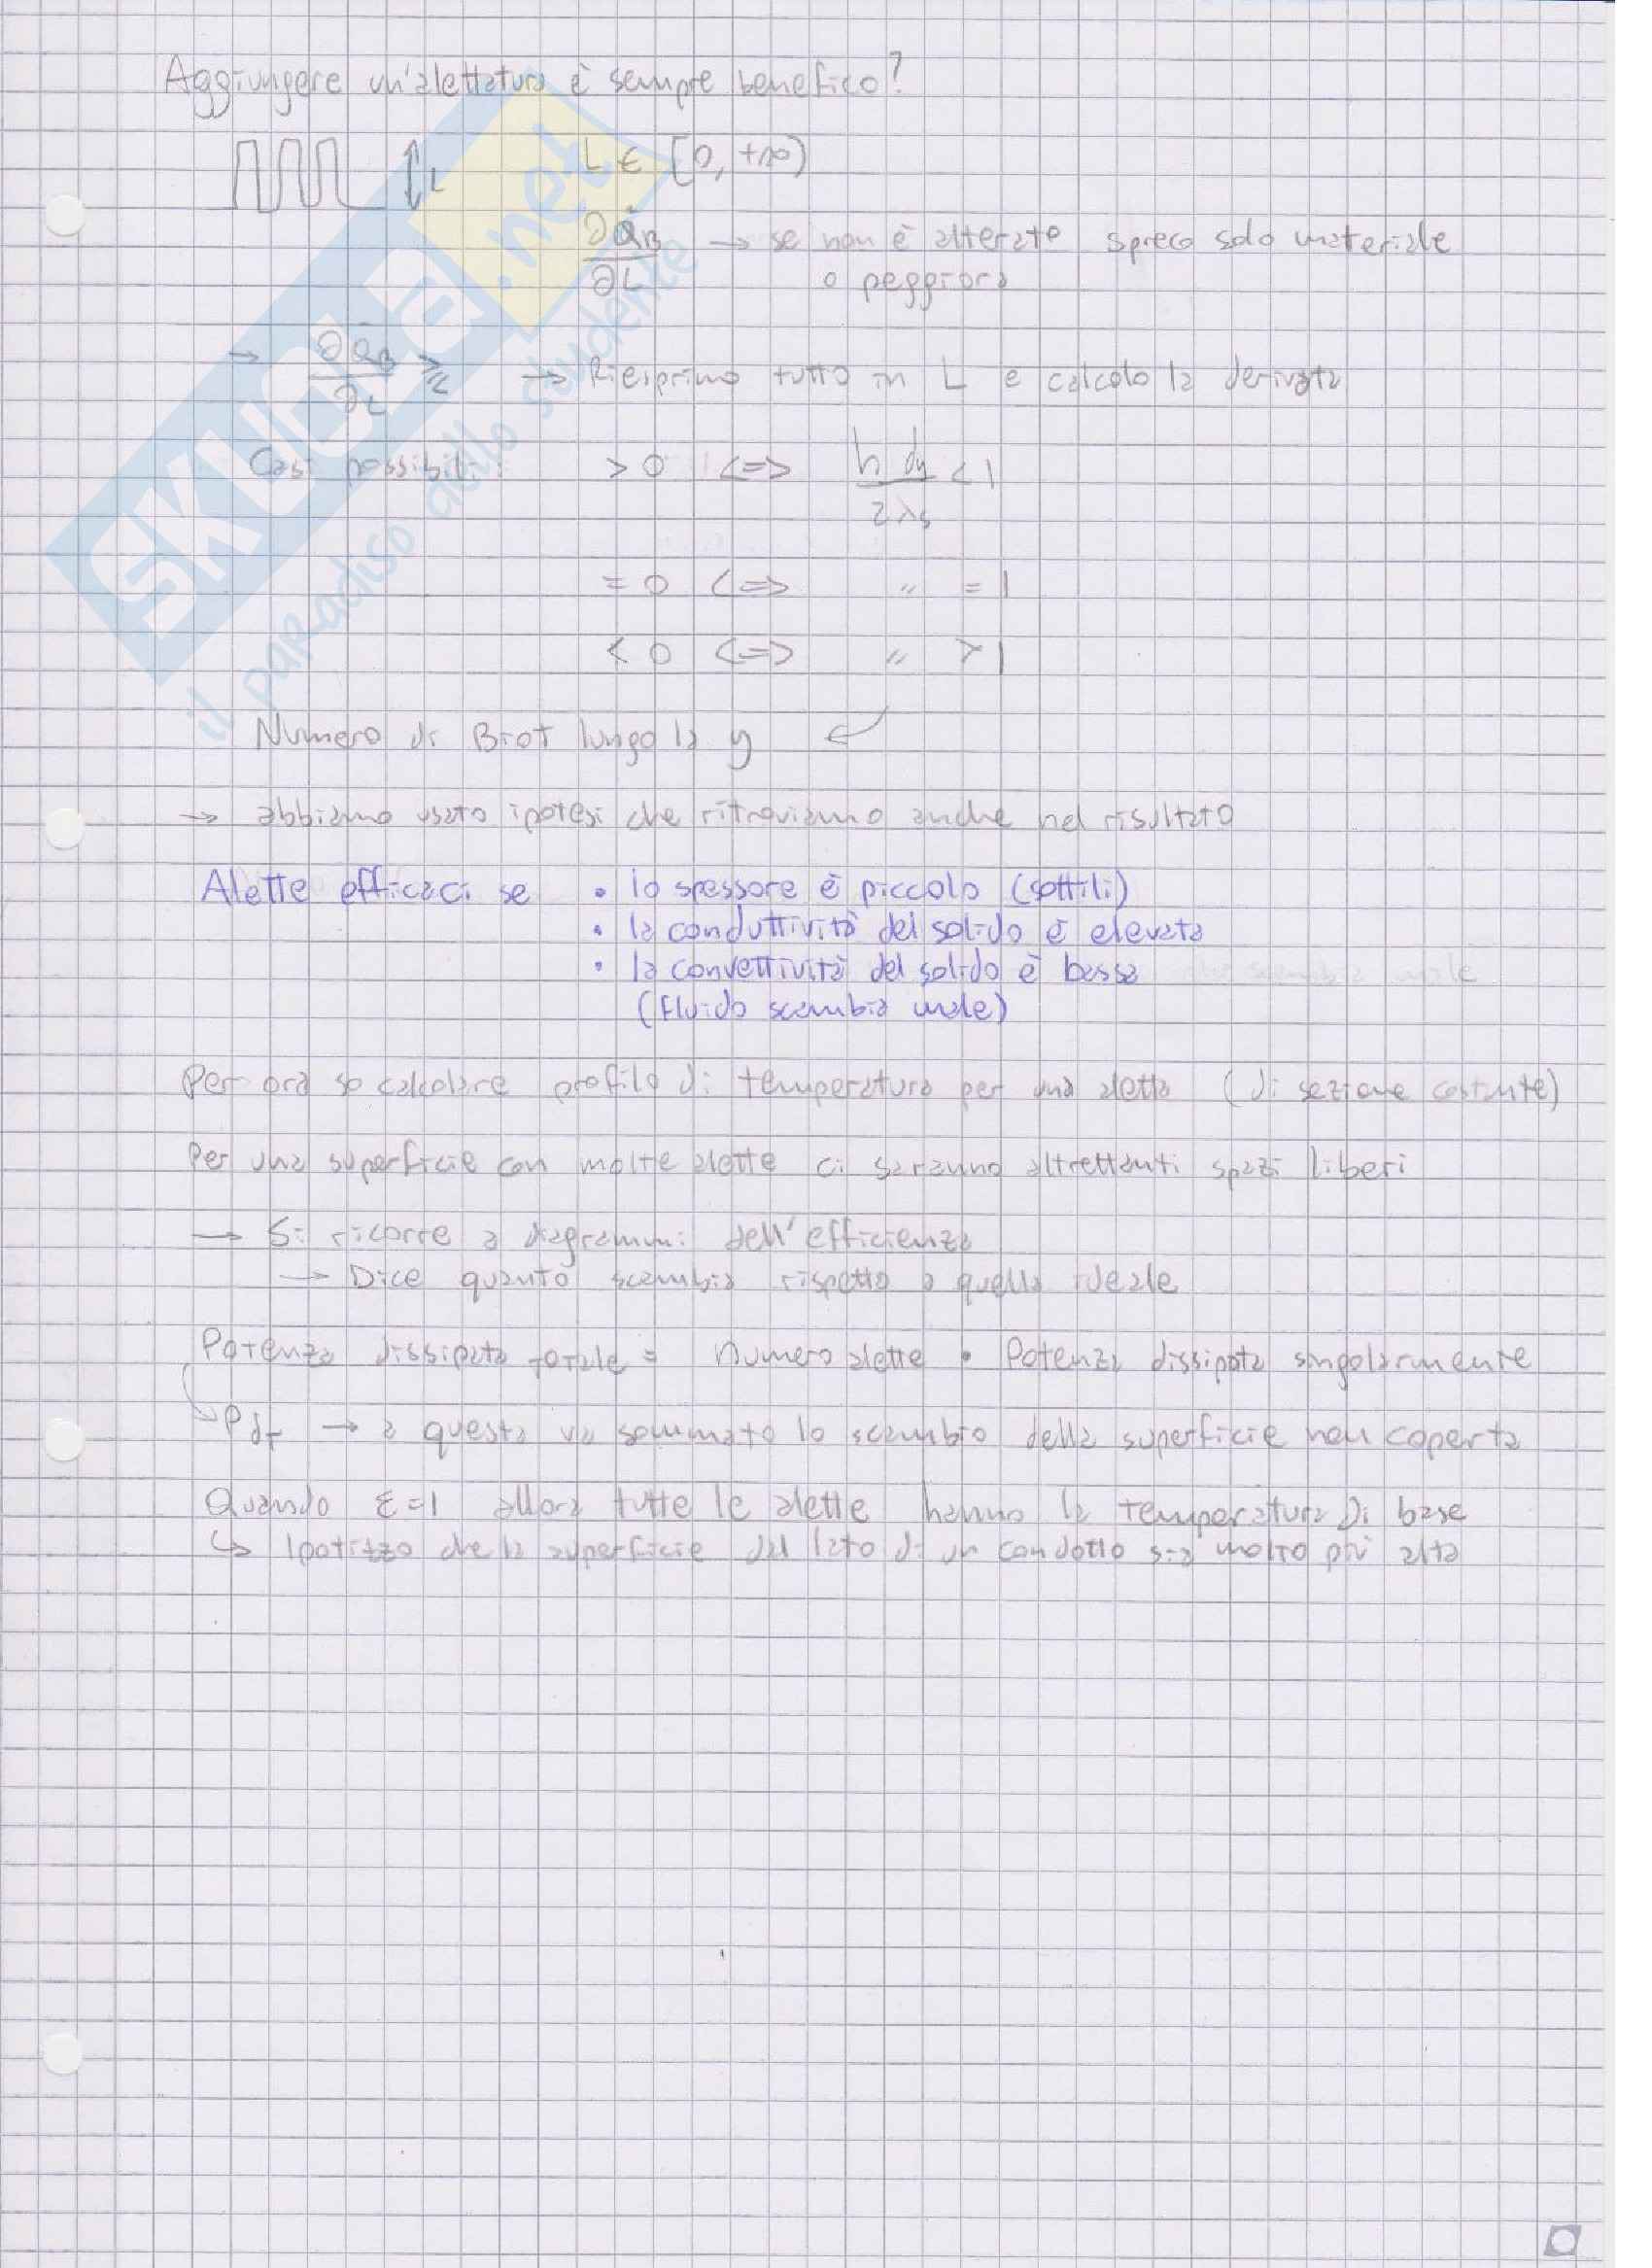 Aggiungere un'alettatura è sempre benefico?
L
L ∈ [0, +∞)
∂Q̇B / ∂L → se non è alterata spreco solo materiale
o peggiora
→ ∂Q̇B / ∂L ⋛ → Riesprimo tutto in L e calcolo la derivata
Casi possibili: > 0 <=> h dy / 2λs < 1
= 0 <=> " = 1
< 0 <=> " > 1
Numero di Biot lungo la y
→ abbiamo usato ipotesi che ritroviamo anche nel risultato
Alette efficaci se • lo spessore è piccolo (sottili)
• la conduttività del solido è elevata
• la convettività del solido è bassa
(fluido scambia male)
Per ora so calcolare profilo di temperatura per una aletta (di sezione costante)
Per una superficie con molte alette ci saranno altrettanti spazi liberi
→ Si ricorre a diagrammi dell'efficienza
→ Dice quanto scambia rispetto a quella ideale
Potenza dissipata totale = numero alette • Potenza dissipata singolarmente
PdT → a questa va sommato lo scambio della superficie non coperta
Quando ε=1 allora tutte le alette hanno la temperatura di base
↳ Ipotizzo che la superficie del lato di un condotto sia molto più alta
SKUOLA.net
il paradiso dello studente